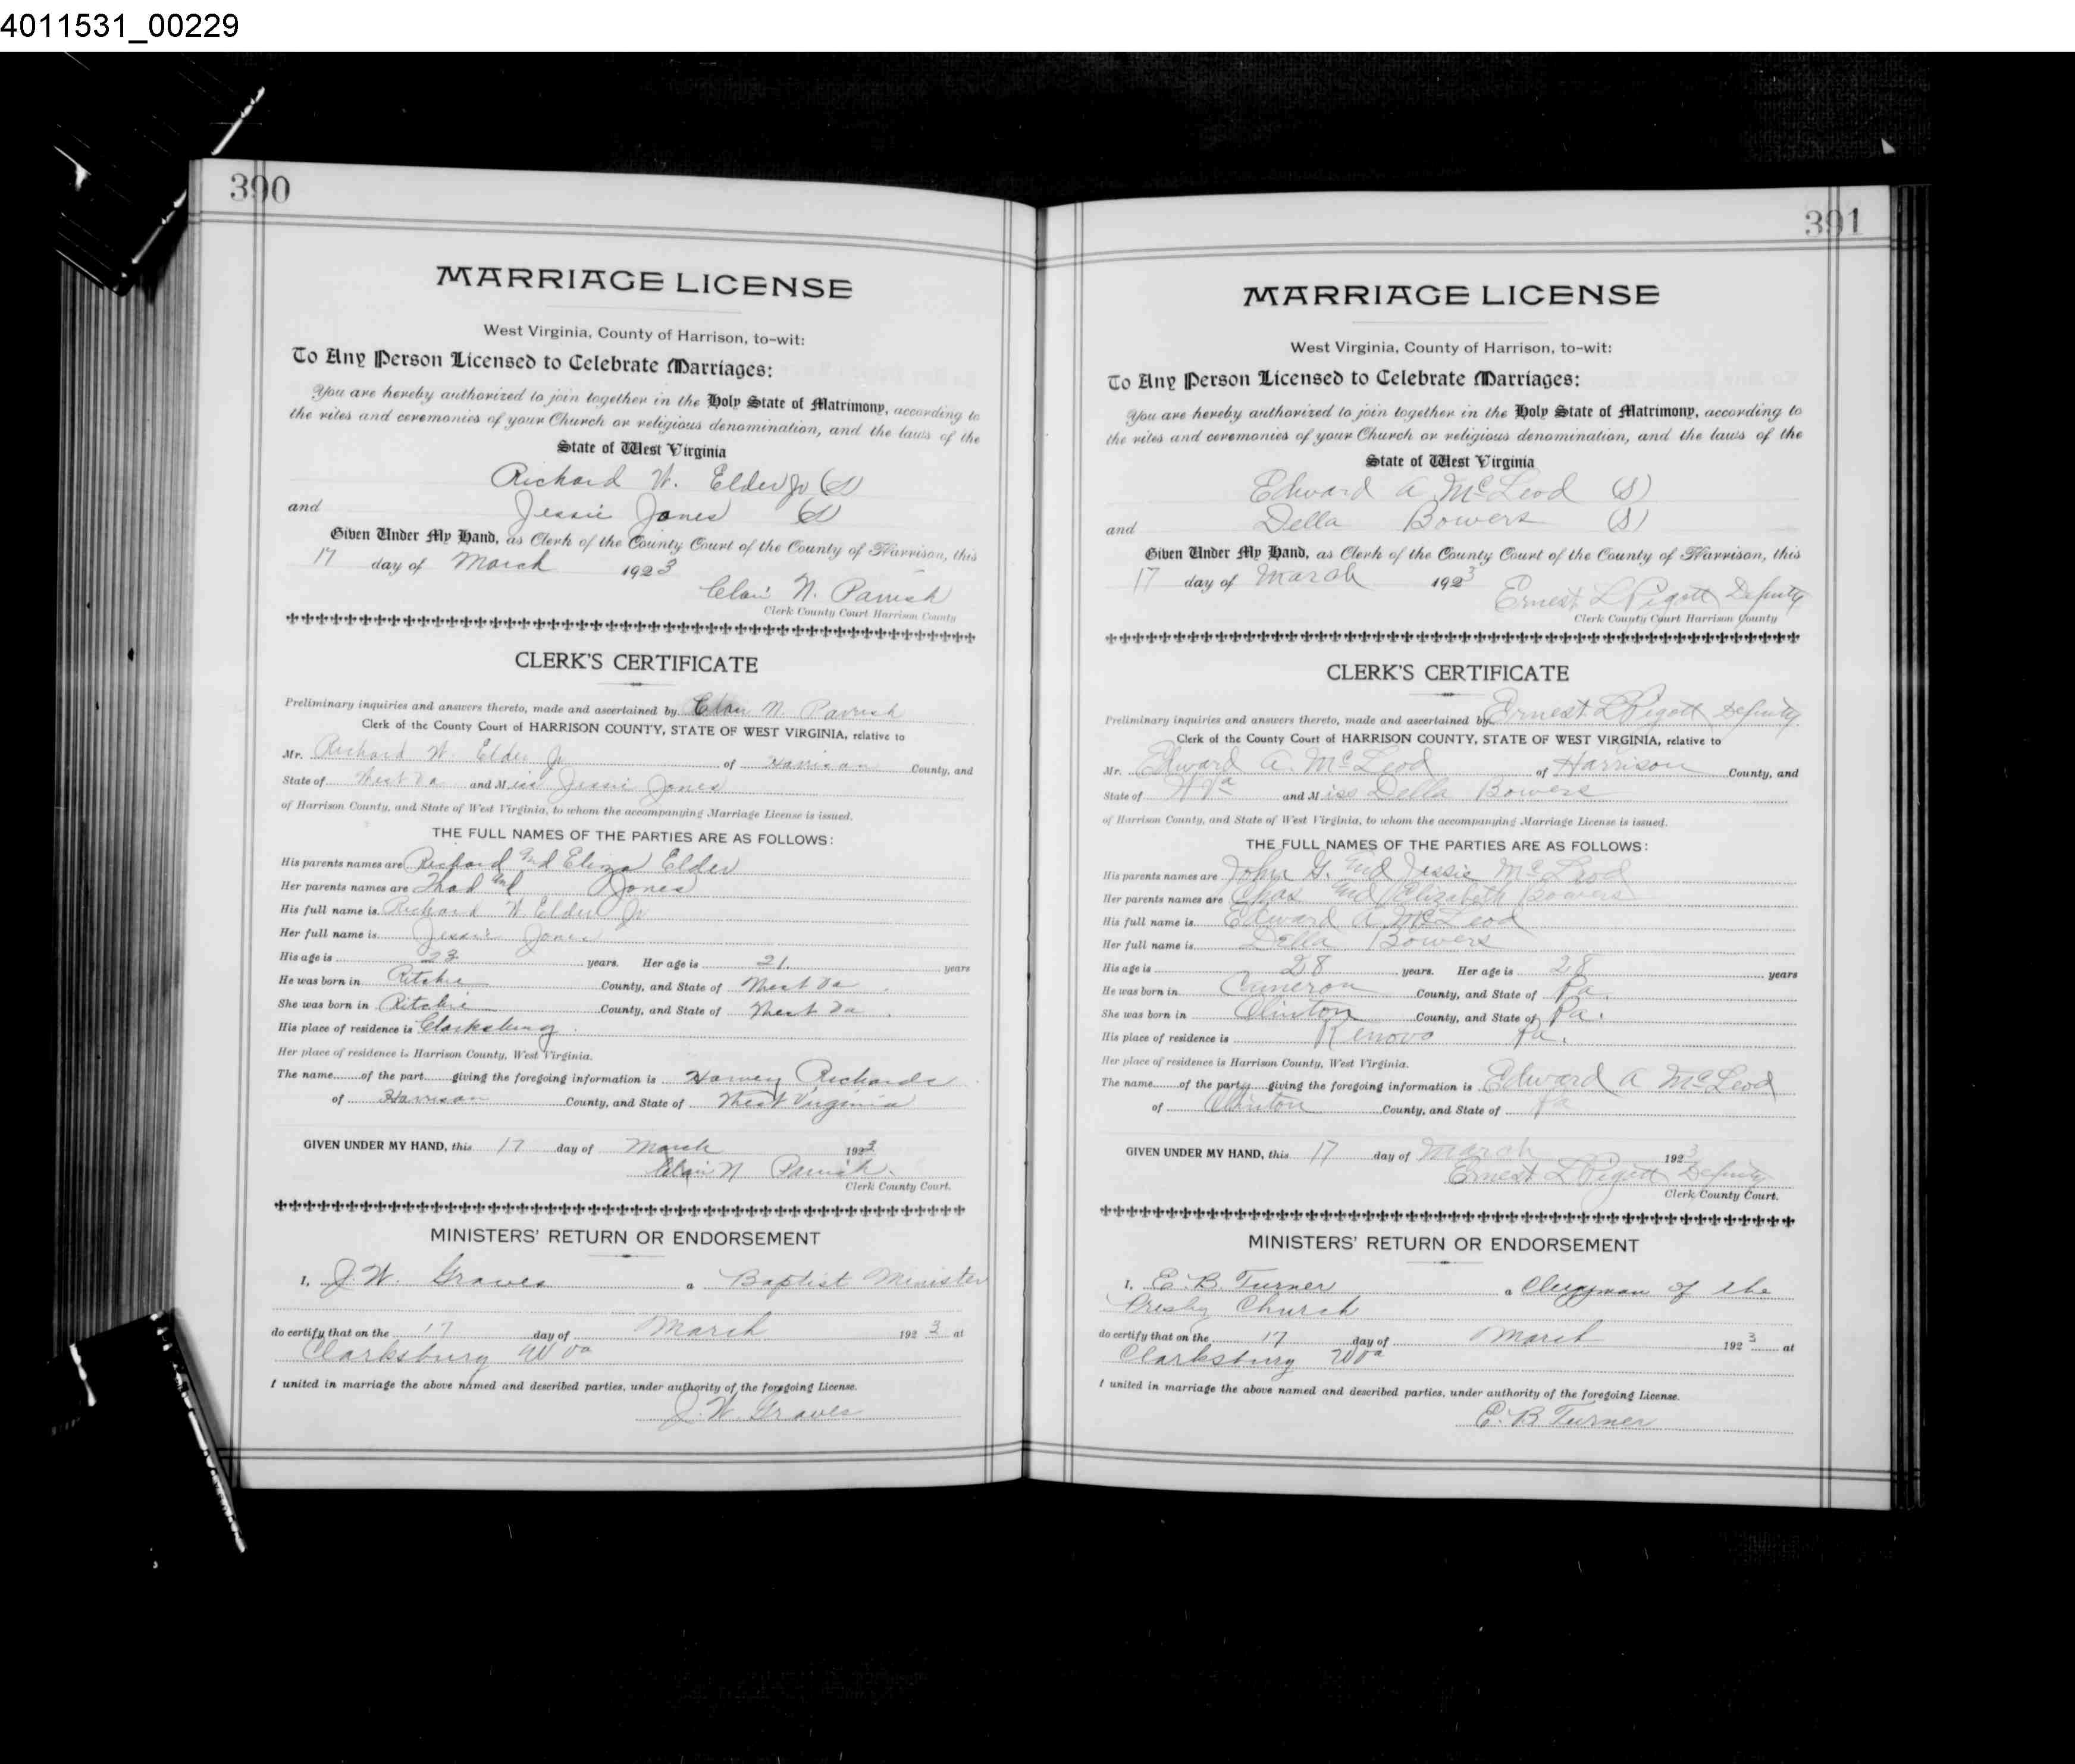 4011531_00229
390
MARRIAGE LICENSE
West Virginia, County of Harrison, to-wit:
To Any Person Licensed to Celebrate Marriages:
You are hereby authorized to join together in the Holy State of Matrimony, according to
the rites and ceremonies of your Church or religious denomination, and the laws of the
State of West Virginia
Richard W. Elder Jr (S)
and Jessie Jones (S)
Given Under My Hand, as Clerk of the County Court of the County of Harrison, this
17 day of March 1923
Clair N. Parrish
Clerk County Court Harrison County
CLERK'S CERTIFICATE
Preliminary inquiries and answers thereto, made and ascertained by Clair N. Parrish
Clerk of the County Court of HARRISON COUNTY, STATE OF WEST VIRGINIA, relative to
Mr. Richard W. Elder Jr of Harrison County, and
State of West Va and Miss Jessie Jones
of Harrison County, and State of West Virginia, to whom the accompanying Marriage License is issued.
THE FULL NAMES OF THE PARTIES ARE AS FOLLOWS:
His parents names are Richard and Eliza Elder
Her parents names are Thad and Jones
His full name is Richard W Elder Jr
Her full name is Jessie Jones
His age is 23 years. Her age is 21. years
He was born in Ritchie County, and State of West Va.
She was born in Ritchie County, and State of West Va.
His place of residence is Clarksburg.
Her place of residence is Harrison County, West Virginia.
The name of the part giving the foregoing information is Harvey Richards
of Harrison County, and State of West Virginia
GIVEN UNDER MY HAND, this 17 day of March 1923
Clair N Parrish.
Clerk County Court.
MINISTERS' RETURN OR ENDORSEMENT
I, J. W. Graves a Baptist Minister
do certify that on the 17 day of March 1923 at
Clarksburg W Va
I united in marriage the above named and described parties, under authority of the foregoing License.
J. W. Graves
391
MARRIAGE LICENSE
West Virginia, County of Harrison, to-wit:
To Any Person Licensed to Celebrate Marriages:
You are hereby authorized to join together in the Holy State of Matrimony, according to
the rites and ceremonies of your Church or religious denomination, and the laws of the
State of West Virginia
Edward A McLeod (S)
and Della Bowers (S)
Given Under My Hand, as Clerk of the County Court of the County of Harrison, this
17 day of March 1923
Ernest L Pigott Deputy
Clerk County Court Harrison County
CLERK'S CERTIFICATE
Preliminary inquiries and answers thereto, made and ascertained by Ernest L Pigott Deputy.
Clerk of the County Court of HARRISON COUNTY, STATE OF WEST VIRGINIA, relative to
Mr. Edward A. McLeod of Harrison County, and
State of W Va and Miss Della Bowers
of Harrison County, and State of West Virginia, to whom the accompanying Marriage License is issued.
THE FULL NAMES OF THE PARTIES ARE AS FOLLOWS:
His parents names are John G. and Jessie McLeod
Her parents names are Chas and Elizabeth Bowers
His full name is Edward A McLeod
Her full name is Della Bowers
His age is 28 years. Her age is 28 years
He was born in Cameron County, and State of Pa.
She was born in Clinton County, and State of Pa.
His place of residence is Renovo Pa.
Her place of residence is Harrison County, West Virginia.
The name of the party giving the foregoing information is Edward A McLeod
of Clinton County, and State of Pa
GIVEN UNDER MY HAND, this 17 day of March 1923
Ernest L Pigott Deputy
Clerk County Court.
MINISTERS' RETURN OR ENDORSEMENT
I, E. B. Turner a Clergyman of the
Presby Church
do certify that on the 17 day of March 1923 at
Clarksburg W Va
I united in marriage the above named and described parties, under authority of the foregoing License.
E. B Turner